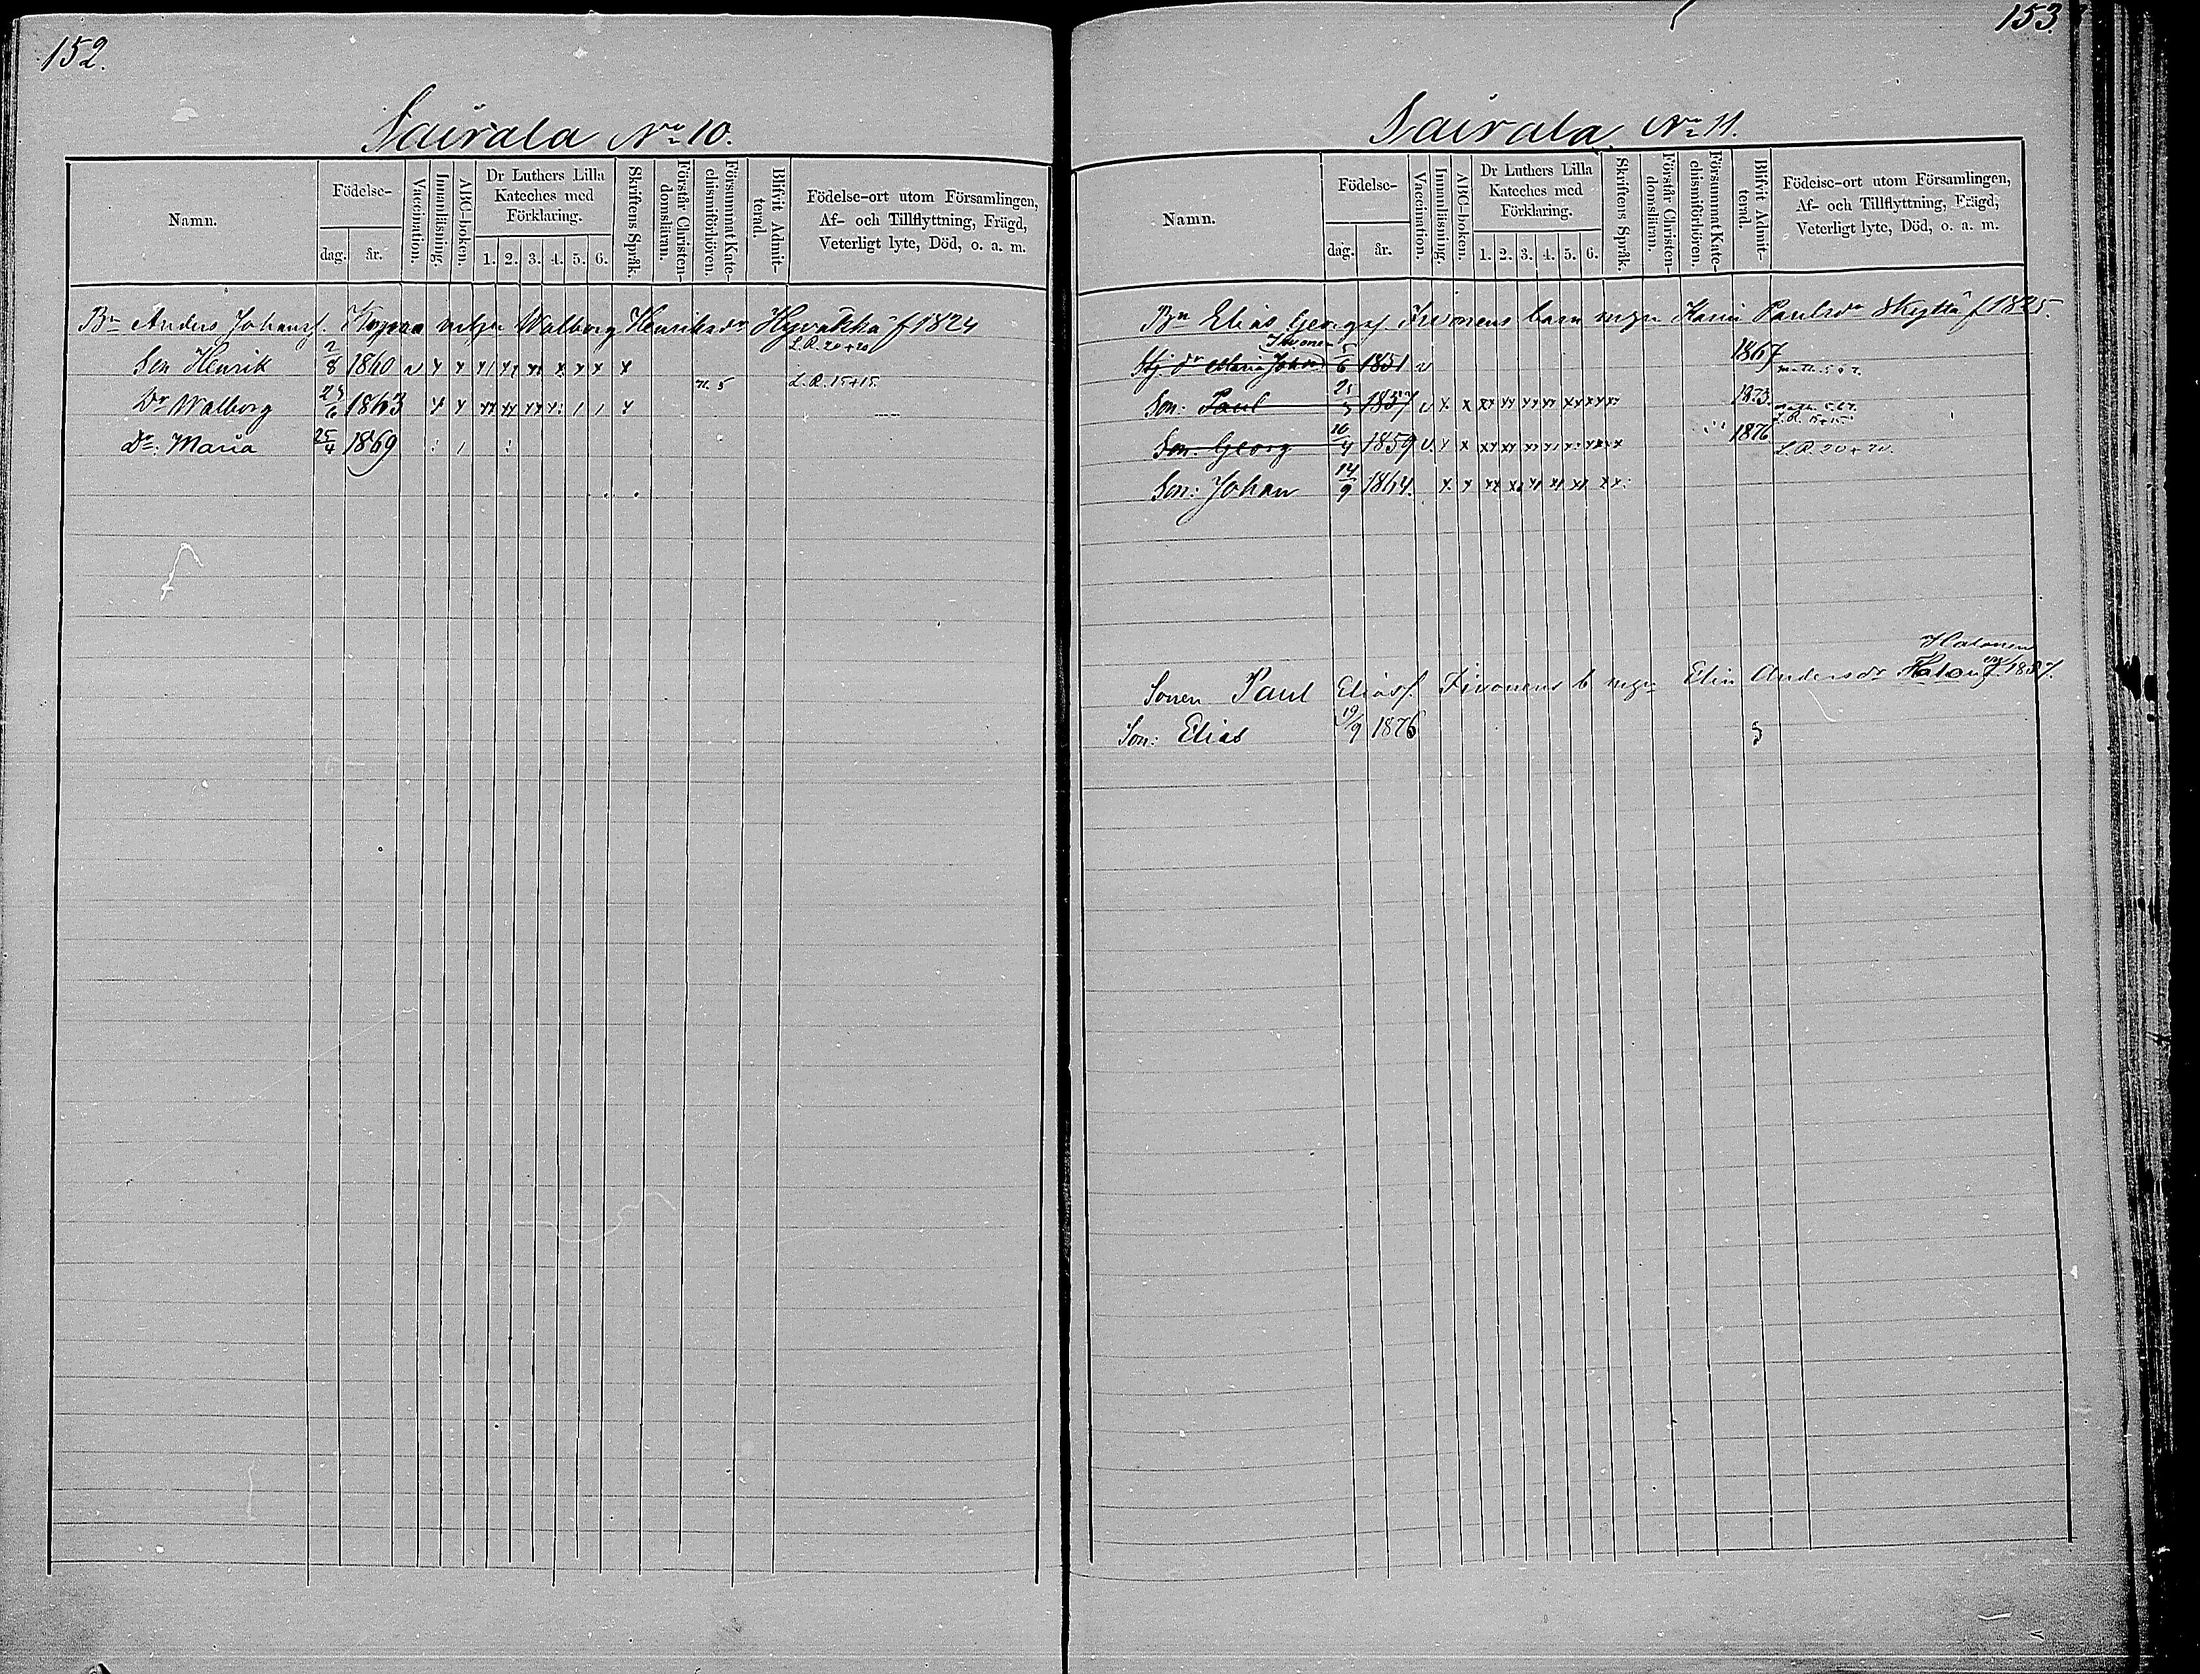 152.
Sairala No 10.
Namn.
Födelse-
dag.
år.
Vaccination.
Innanläsning.
ABC-boken.
Dr Luthers Lilla
Kateches med
Förklaring.
1. 2. 3. 4. 5. 6.
Skriftens Språk.
Förstår Christen-
domsläran.
Försummat Kate-
chismiförhören.
Blifvit Admit-
terad.
Födelse-ort utom Församlingen,
Af- och Tillflyttning, Frägd,
Veterligt lyte, Död, o. a. m.
Bn Anders Johansf. Walborg Henriksdr f 1824
Son Henrik 2/8 1860 v x x x L.R. 20+20
Dr Walborg 1863 x x n. 5 L.R. 15+15.
Dr: Maria 25/4 1869
153.
Sairala No 11.
Namn.
Födelse-
dag.
år.
Vaccination.
Innanläsning.
ABC-boken.
Dr Luthers Lilla
Kateches med
Förklaring.
1. 2. 3. 4. 5. 6.
Skriftens Språk.
Förstår Christen-
domsläran.
Försummat Kate-
chismiförhören.
Blifvit Admit-
terad.
Födelse-ort utom Församlingen,
Af- och Tillflyttning, Frägd,
Veterligt lyte, Död, o. a. m.
Bn Elias Georgsf. Iivonens barn m Paulsdr Skyttä f 1825.
Iivonen
Maria 5/6 1851 v 1867
Son: Paul 1857 v x x 1873
Son: Georg 10/4 1859 v. 1876 L.R. 20+20.
Son: Johan 14/9 1864. x x
Halonen
Sonen Paul Eliasf. Iivonens b Elin Andersdr
Son: Elias 19/9 1876